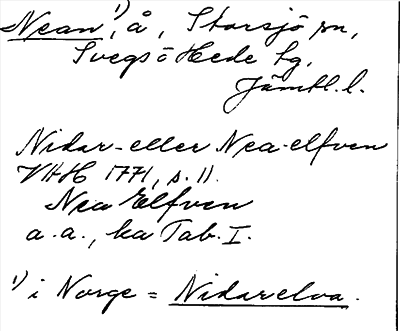 Nean¹⁾, å, Storsjö sn,
Svegs o Hede tg.
Jämtl. l.
Nidar- eller Nea-elfven
VHH 1771, s. 11.
Nea Elfven
a. a., ka Tab. I.
¹⁾ i Norge = Nidarelva.